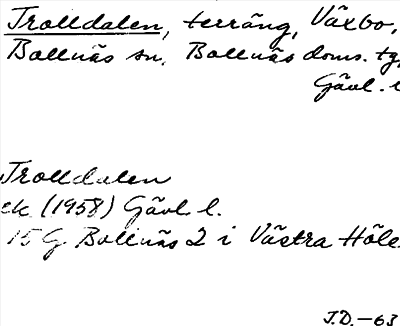 Trolldalen, terräng, Växbo,
Bollnäs sn, Bollnäs doms. tg,
Gävl. l
Trolldalen
ek (1958) Gävl. l.
15 G Bollnäs 2 i Västra Höle
J.D. -63